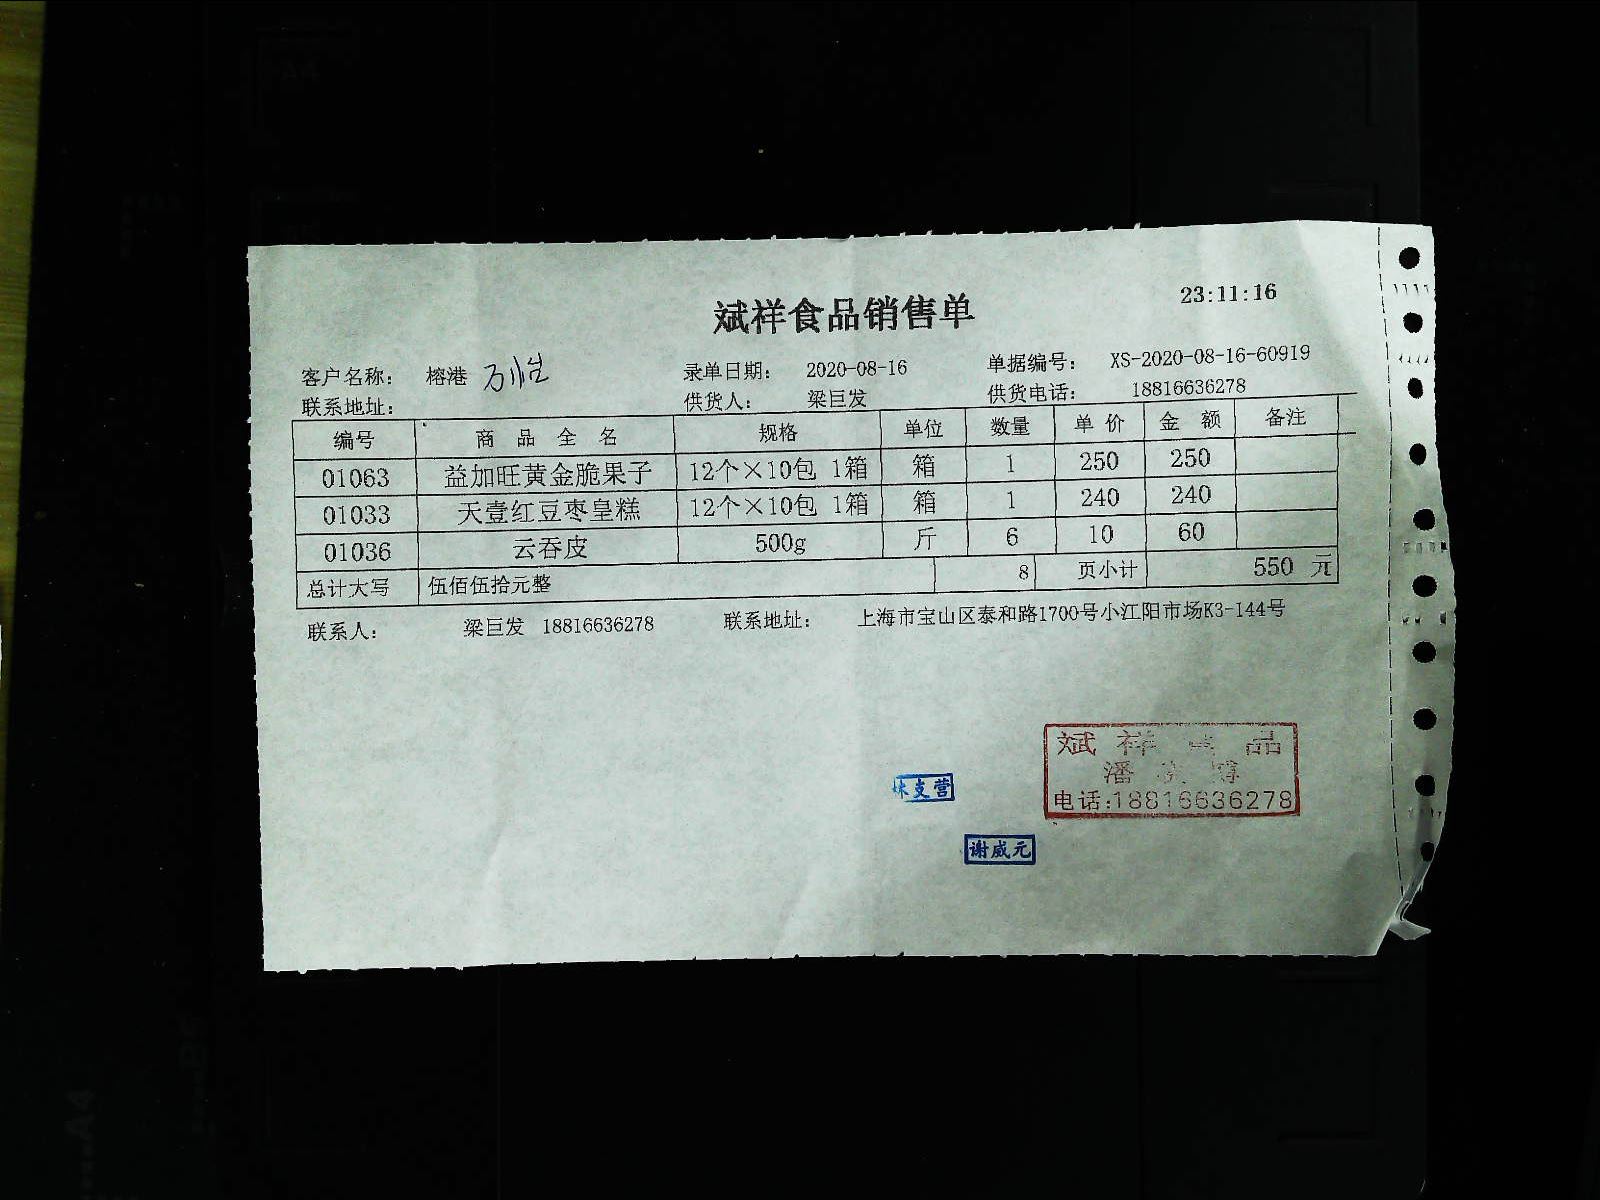 23:11:16
斌祥食品销售单
客户名称： 榕港 录单日期： 2020-08-16 单据编号： XS-2020-08-16-60919
联系地址： 供货人： 梁巨发 供货电话： 18816636278
编号 商 品 全 名 规格 单位 数量 单 价 金 额 备注
01063 益加旺黄金脆果子 12个×10包 1箱 箱 1 250 250
01033 天壹红豆枣皇糕 12个×10包 1箱 箱 1 240 240
01036 云吞皮 500g 斤 6 10 60
总计大写 伍佰伍拾元整 8 页小计 550 元
联系人： 梁巨发 18816636278 联系地址： 上海市宝山区泰和路1700号小江阳市场K3-144号
斌 祥 品
潘
电话:18816636278
支营
谢威元